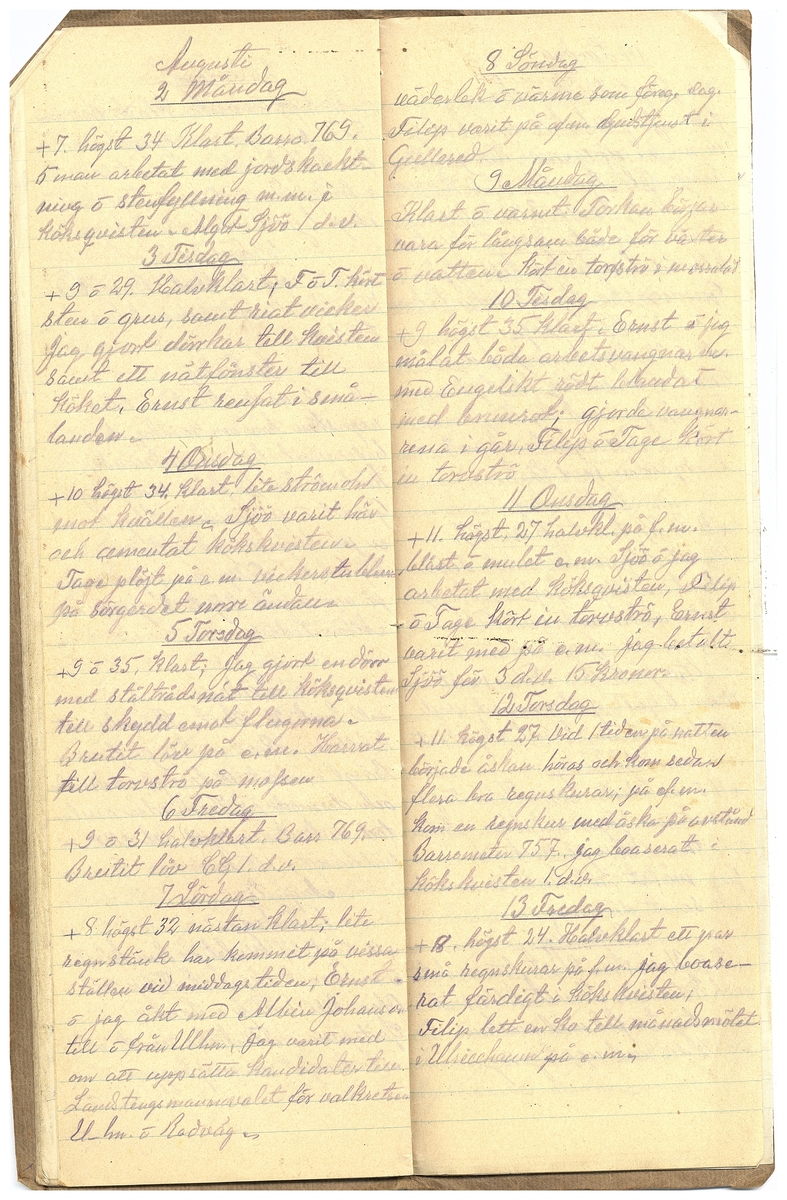 Augusti
2 Måndag
+7. högst 34 Klart. Barro. 769.
5 man arbetat med jordskakt-
ning ō stenfyllning m.m. i
köksqvisten. Algot Sjöö 1 d.v.
3 Tisdag
+9 ō 29. Halvklart; F ō T. kört
sten ō grus, samt hiat vicker
jag gjort dörrkar till kvisten
samt ett nätfönster till
köket. Ernst rensat i små-
landen.
4 Onsdag
+10 högst 34. klart, lite
mot kvällen. Sjöö varit här
och cementat kökskvisten.
Tage plöjt på e.m. vickerstubben
på sörgerdet norr ändan
5 Torsdag
+9 ō 35. klart; jag gjort en dörr
med ståltrådsnät till köksqvisten
till skydd emot flugorna.
Breitit löv på e.m. Harvat
till torvströ på mossen
6 Fredag
+9 ō 31 halvklart. Barr 769.
Breitit löv CG 1. d.v.
7 Lördag
+8 högst 32 nästan klart; lite
regnstänk har kommit på vissa
ställen vid middagstiden, Ernst
ō jag åkt med Albin Johanson
till ō från Ulhn, jag varit med
om att uppsätta kandidater till
Landstingsmannavalet för valkretsen
U-hn. ō Redväg.
8 Söndag
väderlek ō värme som föreg. dag.
Filip varit på f.m. Gudstjenst i
Gullered.
9 Måndag
Klart ō varmt. Torkan börjar
vara för långsam både för växter
ō vatten. Kört in torvströ i
10 Tisdag
+9 högst 35 klart. Ernst ō jag
målat båda arbetsvangnarna.
med Engelskt rödt blandat
med brunrot; gjorde vangnar-
rena i går, Filip ō Tage kört
in torvströ
11 Onsdag
+11. högst. 27 halvkl. på f.m.
blåst ō mulet e.m. Sjöö ō jag
arbetat med köksqvisten, Filip
ō Tage kört in torvströ, Ernst
varit med på e.m. jag betalt
Sjöö för 3 d.v. 15 kronor.
12 Torsdag
+11 högst 27. vid 1 tiden på natten
började åskan höras och kom sedan
flera bra regnskurar; på f.m.
kom en regnskur med åska på avstånd
Barrometer 757. jag boaserat i
kökskvisten 1. d.v.
13 Fredag
+8. högst 24. Halvklart ett par
små regnskurar på f.m. jag boase-
rat färdigt i kökskvisten,
Filip lett en ko till månadsmötet
i Ulricehamn på e.m.